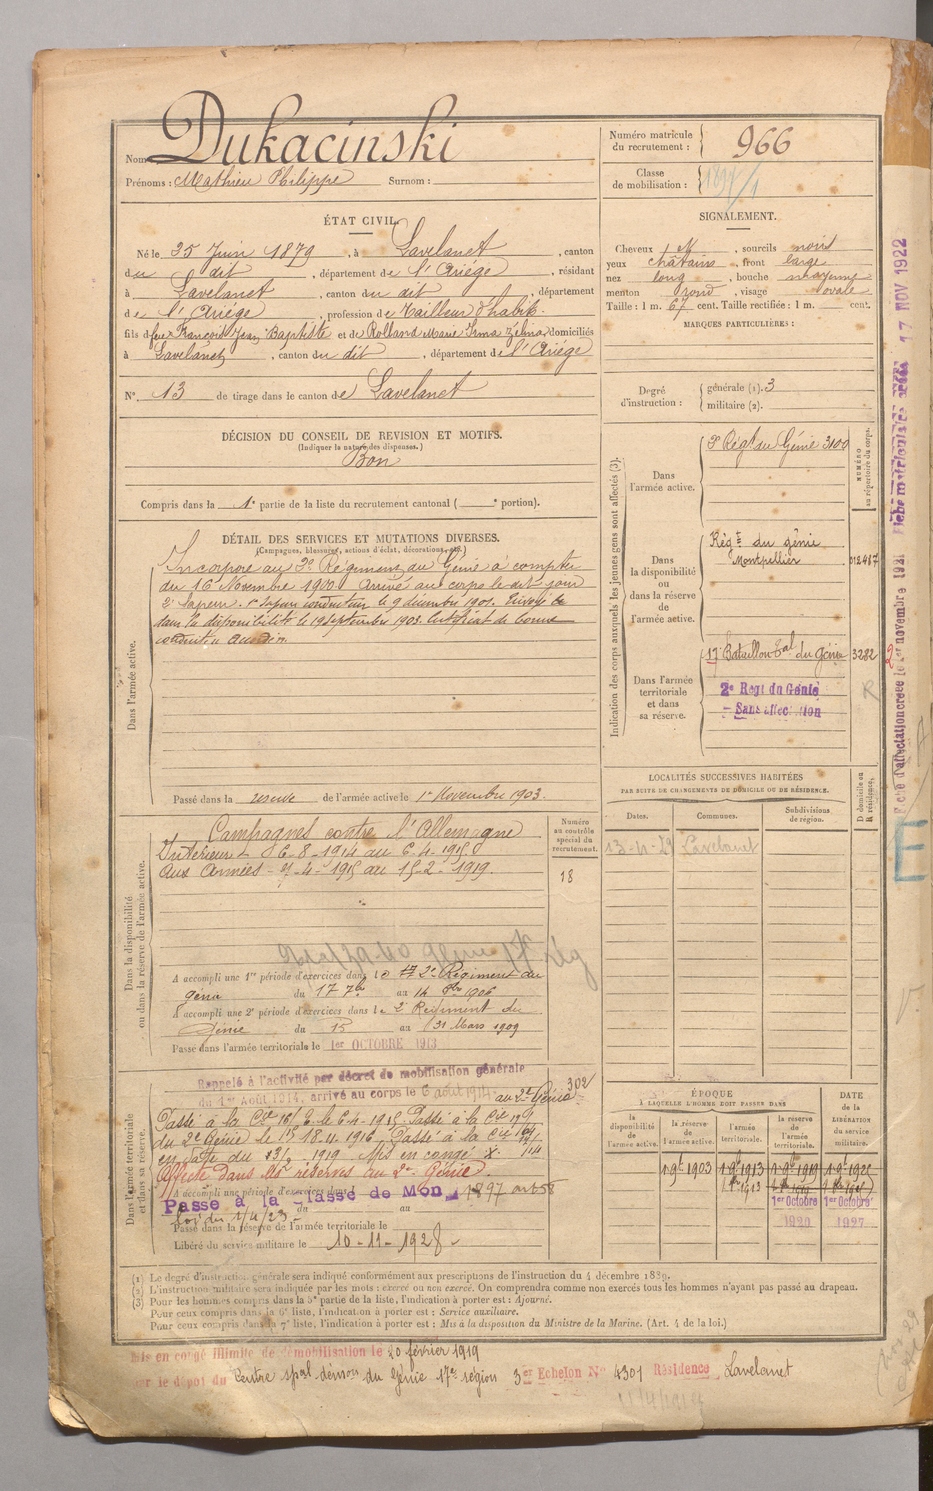 Nom Dukacinski
Prénoms : Mathieu Philippe Surnom :
Numéro matricule du recrutement : 966
Classe de mobilisation : 1897/1
ÉTAT CIVIL.
Né le 25 Juin 1879, à Lavelanet, canton
du dit, département de l'Ariége, résidant
à Lavelanet, canton du dit, département
de l'Ariége, profession de Tailleur d'habit.
fils de feu François Jean Baptiste et de Rolland Marie Irma Zélina domiciliés
à Lavelanet, canton du dit, département de l'Ariége
N° 13 de tirage dans le canton de Lavelanet
SIGNALEMENT.
Cheveux N, sourcils noirs
yeux châtains, front large
nez long, bouche moyenne
menton rond, visage ovale
Taille : 1 m. 67 cent. Taille rectifiée : 1 m. cent.
MARQUES PARTICULIÈRES :
Degré d'instruction : générale (1). 3
militaire (2).
DÉCISION DU CONSEIL DE REVISION ET MOTIFS.
(Indiquer la nature des dispenses.)
Bon
Compris dans la 1e partie de la liste du recrutement cantonal ( e portion).
DÉTAIL DES SERVICES ET MUTATIONS DIVERSES.
(Campagnes, blessures, actions d'éclat, décorations, etc.)
Dans l'armée active.
Incorporé au 2e Régiment du Génie à compter
du 16 Novembre 1900. Arrivé au corps le dit jour
2e Sapeur. 1er Sapeur conducteur le 9 décembre 1901. Envoyé
dans la disponibilité le 19 Septembre 1903. Certificat de bonne
conduite Accordé.
Passé dans la réserve de l'armée active le 1er Novembre 1903.
Indication des corps auxquels les jeunes gens sont affectés (3).
NUMÉRO au répertoire du corps.
Dans l'armée active.
2e Régt du Génie 3100
Dans la disponibilité ou dans la réserve de l'armée active.
Régt du génie
Montpellier 012487
Dans l'armée territoriale et dans sa réserve.
17e Bataillon tal du Génie 3282
2e Regt du Génie
Sans affectation
LOCALITÉS SUCCESSIVES HABITÉES
PAR SUITE DE CHANGEMENTS DE DOMICILE OU DE RÉSIDENCE.
Dates. Communes. Subdivisions de région. D domicile ou R résidence.
13-4-29 Lavelanet
Dans la disponibilité ou dans la réserve de l'armée active.
Numéro au contrôle spécial du recrutement.
18
Campagnes contre l'Allemagne
Intérieur - 6-8-1914 au 6-4-1915
Aux Armées - 7-4-1915 au 15-2-1919.
A accompli une 1re période d'exercices dans le 2e Régiment du
génie du 17 7bre au 14 8bre 1906
A accompli une 2e période d'exercices dans le 2e Régiment du
Génie du 15 au 31 Mars 1909
Passé dans l'armée territoriale le 1er OCTOBRE 1913
Dans l'armée territoriale et dans sa réserve.
Rappelé à l'activité par décret de mobilisation générale
du 1er Août 1914, arrivé au corps le 6 août 1914 au 2e Génie
302
Passé à la Cie 16/2 le 6.4.1915 Passé à la Cie
du 2e Génie le 15.4.1916. Passé à la Cie
en date du 1919 Mis en congé
Affecté dans les réserves au 2e Génie.
A accompli une période d'exercices dans l
du au
Passé à la classe de Mon 1897 art 58
loi du 1/4/23
Passé dans la réserve de l'armée territoriale le
Libéré du service militaire le 10-11-1928
ÉPOQUE
A LAQUELLE L'HOMME DOIT PASSER DANS
la disponibilité de l'armée active. la réserve de l'armée active. l'armée territoriale. la réserve de l'armée territoriale.
DATE de la LIBÉRATION du service militaire.
1 9bre 1903 1 9bre 1913 1 9bre 1919 1 9bre 1925
1er Octobre 1er Octobre
1920 1927
(1) Le degré d'instruction générale sera indiqué conformément aux prescriptions de l'instruction du 4 décembre 1889.
(2) L'instruction militaire sera indiquée par les mots : exercé ou non exercé. On comprendra comme non exercés tous les hommes n'ayant pas passé au drapeau.
(3) Pour les hommes compris dans la 5e partie de la liste, l'indication à porter est : Ajourné.
Pour ceux compris dans la 6e liste, l'indication à porter est : Service auxiliaire.
Pour ceux compris dans la 7e liste, l'indication à porter est : Mis à la disposition du Ministre de la Marine. (Art. 4 de la loi.)
Mis en congé illimité de démobilisation le 20 février 1919
par le dépôt du Centre spal démon du Génie 17e région 3er Echelon N° 4301 Résidence Lavelanet
17 NOV 1922